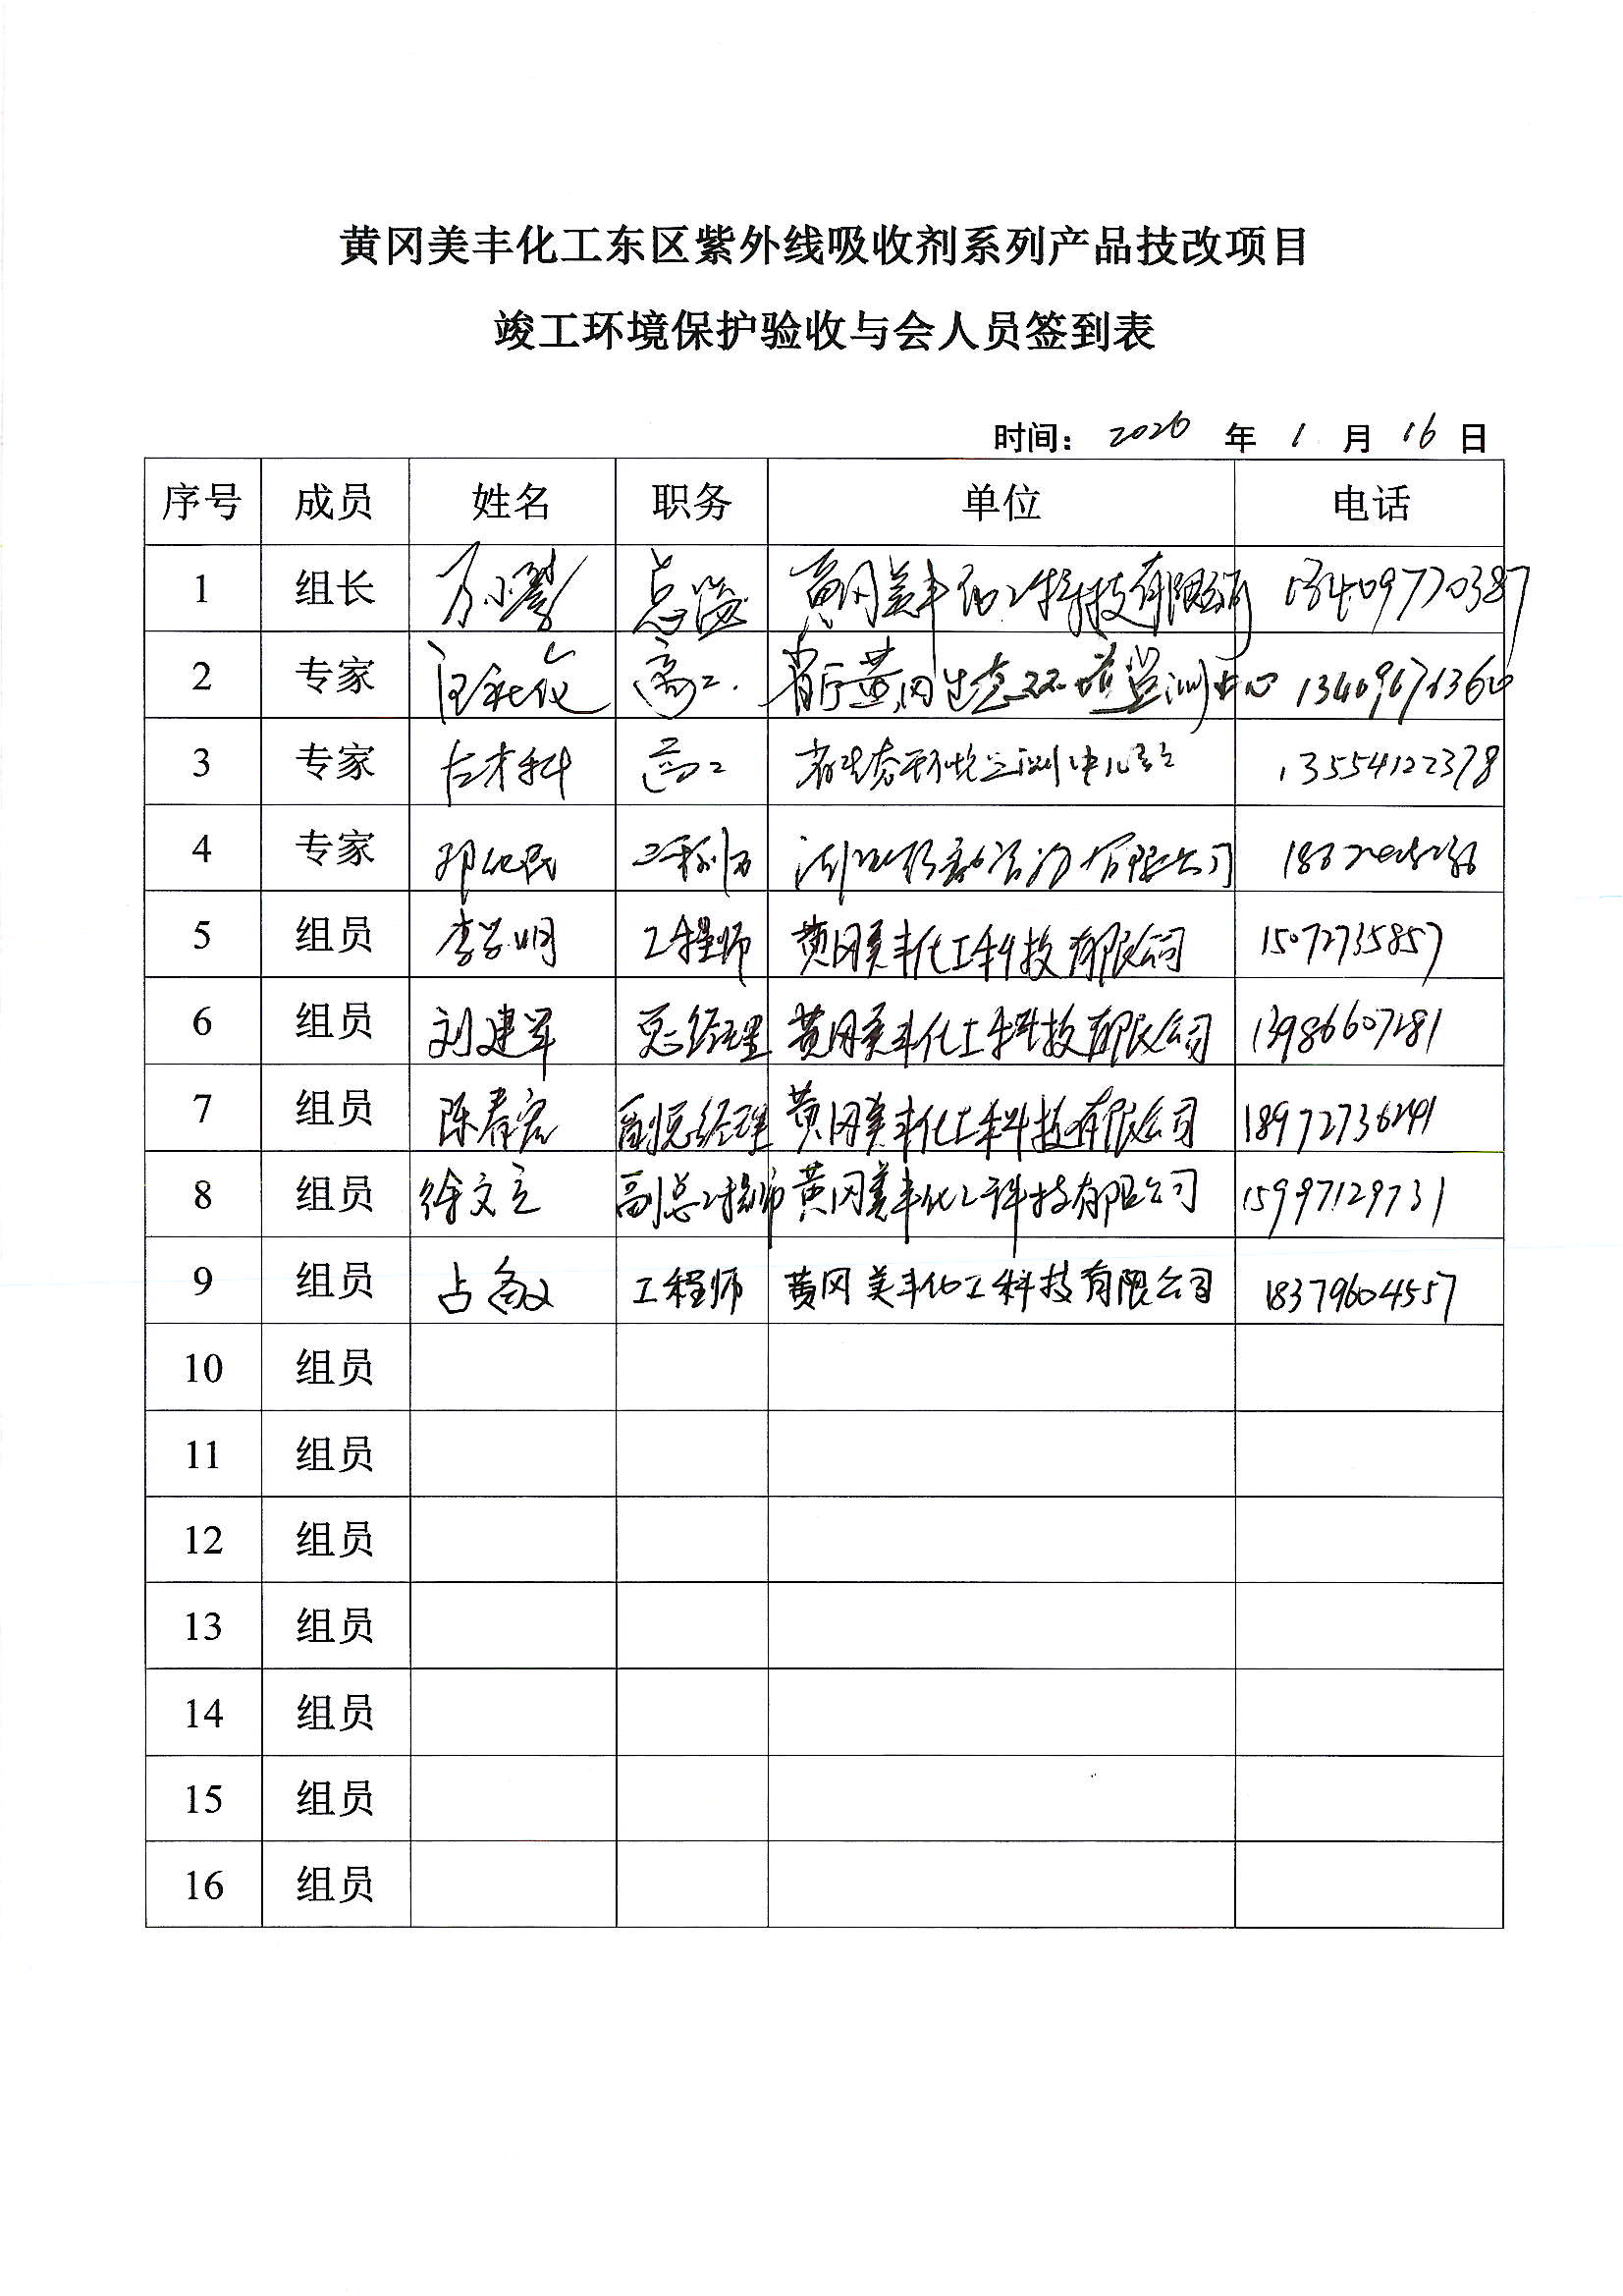 黄冈美丰化工东区紫外线吸收剂系列产品技改项目
竣工环境保护验收与会人员签到表
时间： 2026 年 1 月 16 日
序号 成员 姓名 职务 单位 电话
1 组长 黄冈美丰化工科技有限公司 13409770387
2 专家 高工. 省厅黄冈生态环境监测中心
3 专家 左才科 高工 省生态环境监测中心站 13554122378
4 专家 工程师 有限公司
5 组员 李学明 工程师 黄冈美丰化工科技有限公司 15072735857
6 组员 刘建军 总经理 黄冈美丰化工科技有限公司 13986607281
7 组员 陈春宏 副总经理 黄冈美丰化工科技有限公司 18972736241
8 组员 徐文立 副总工程师 黄冈美丰化工科技有限公司 15997129731
9 组员 占 工程师 黄冈美丰化工科技有限公司 18379604557
10 组员
11 组员
12 组员
13 组员
14 组员
15 组员
16 组员